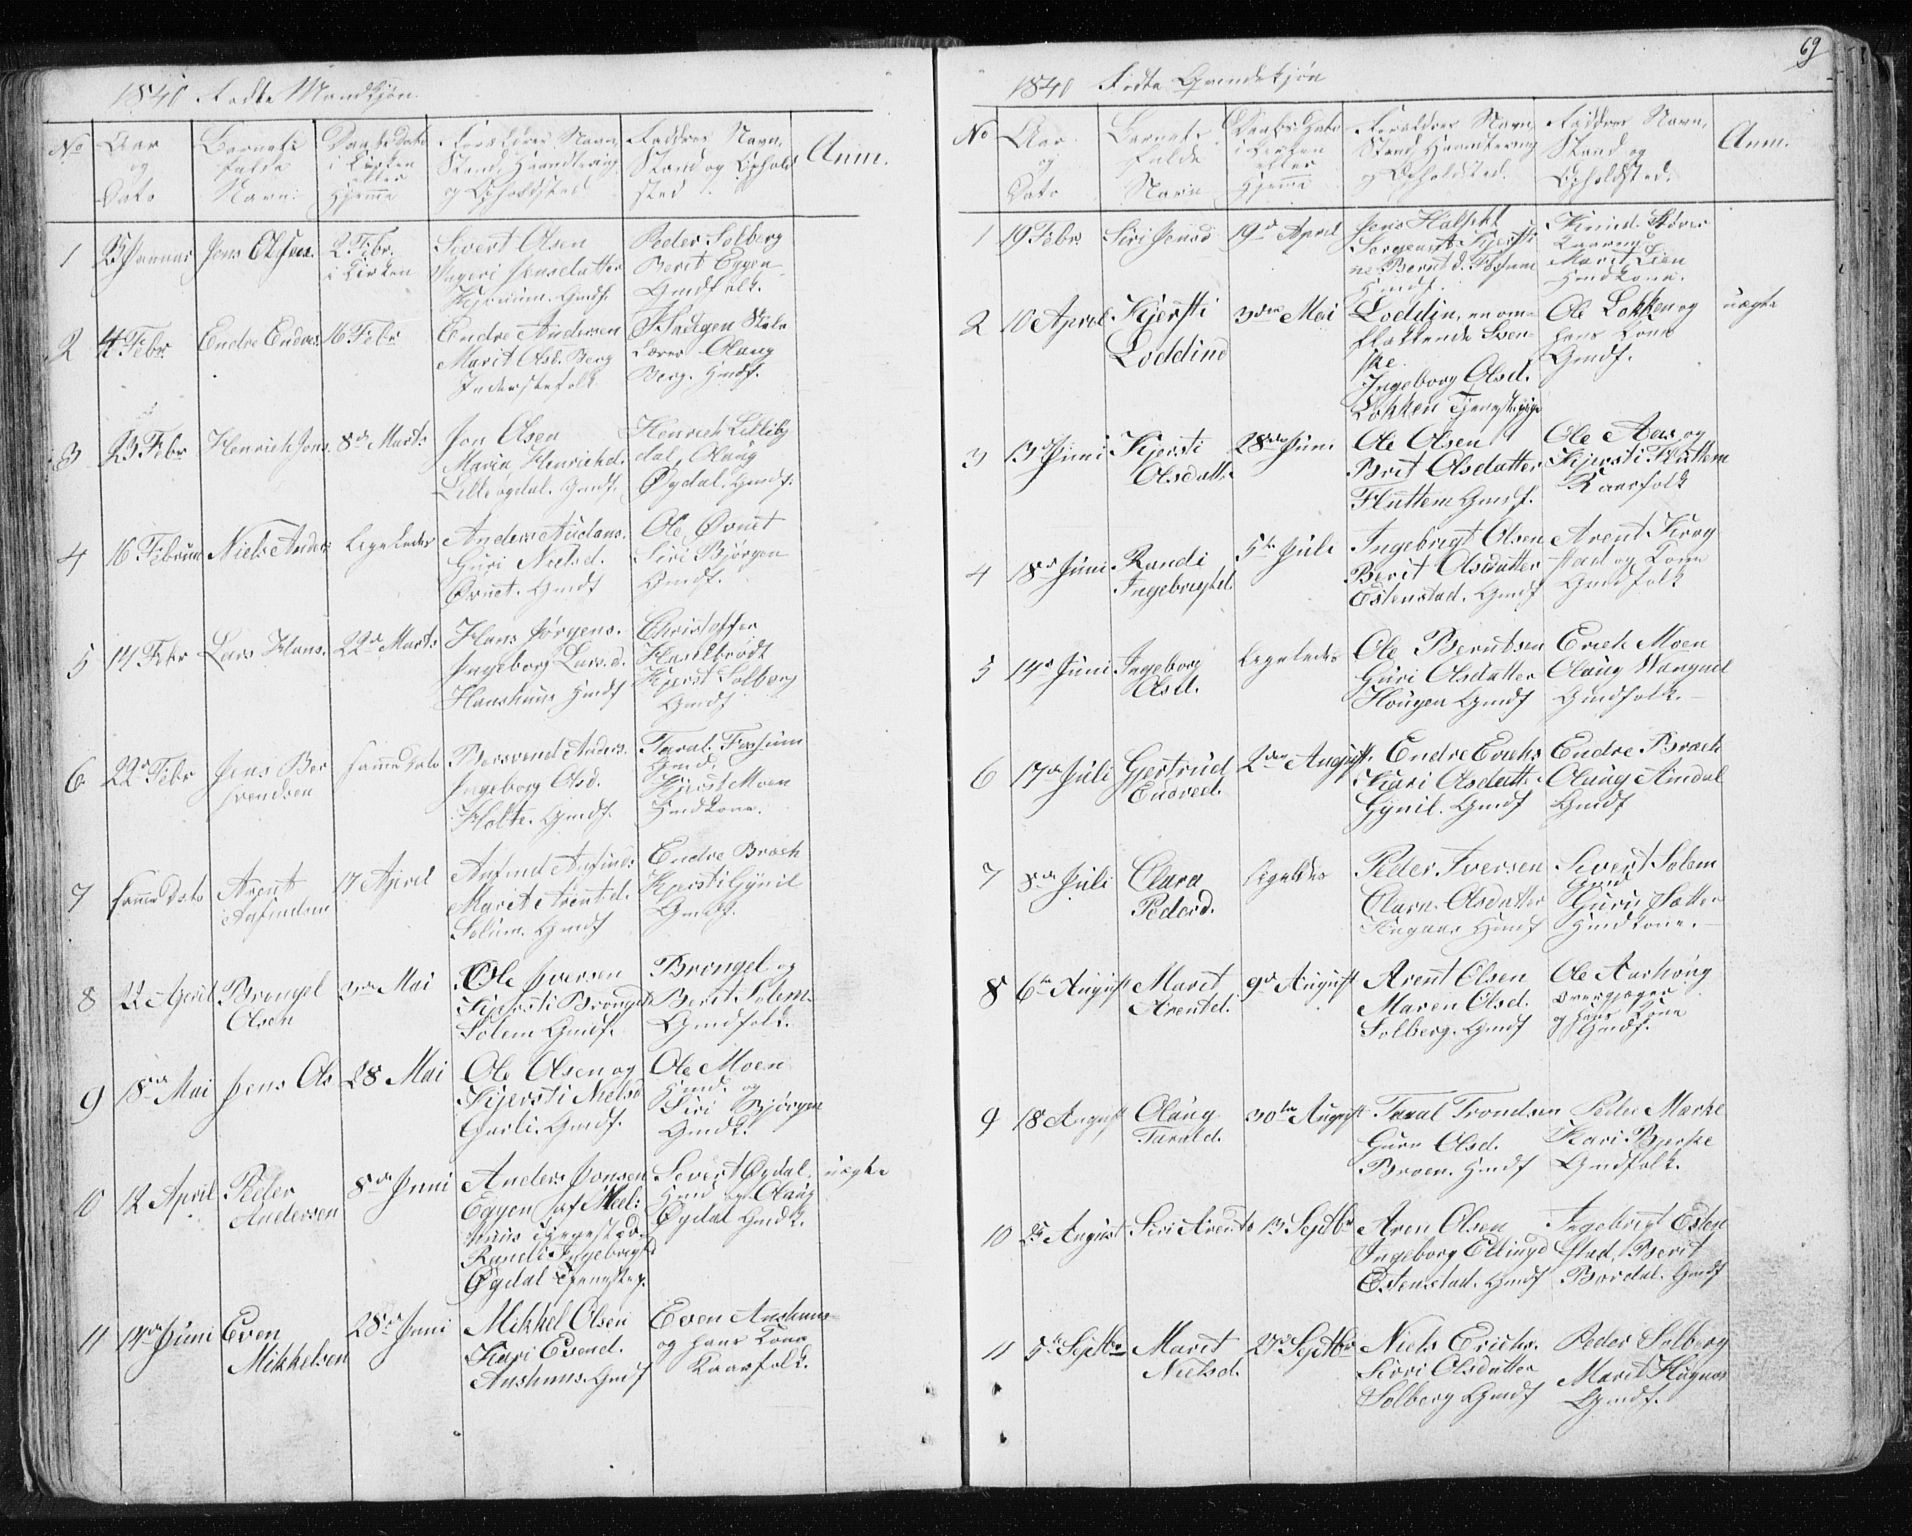 1840 Fødte Mandkjøn.
No
Aar
og
Dato
Barnets
fulde
Navn.
Daabs Dato
i Kirken
eller
Hjemme
Forældres Navn,
Stand, Haandtering
og Opholdsted
Faddres Navn,
Stand og Ophold
sted
Anm.
1
Jens Olsen.
2 Febr.
i Kirken
Sivert Olsen
Jensdatter
Gmdf.
Peder Solberg
Berit Eggen
Gmdfolk.
2
4 Febr
Endre Endres.
16 Febr
Endre Andersen
Marit Olsd. Berg
Inderstefolk
Skole
Lærer Olaug
Berg. Gmdf.
3
23 Febr
Henrich Jons.
8de Marts
Jon Olsen
Maria Henrichd.
Lilleøgdal. Gmdf.
Henrich Lilleøg
dal, Olaug
Øgdal. Gmdf.
4
16 Februar
Niels Anders
Ligeledes
Anders
Guri Nielsd.
Øvnet. Gmdf
Ole Øvnet
Siri Bjørgen
Gmdf.
5
14 Febr
Lars Hans.
22de Marts
Hans Jørgens.
Ingeborg Lars.d.
Hanshuus Gmdf
Christoffer
Kjerst Solberg
Gmdf
6
22de Febr
Jens Ber
svendsen
samme Dato
Bersvend Anders.
Ingeborg Olsd.
Holte. Gmdf.
Taral. Fossum
Gmd.
Kjerst Moen
Gmdkone.
7
samme Dato
Arent
Anfindsen
17 April
Anfind Anfinds.
Marit Arent.d.
Solum. Gmdf
Endre Broch
Kjersti Gynil
Gmdf.
8
22 April
Brengel
Olsen
3de Mai
Ole Iversen
Kjersti Brengelsd
Solem Gmdf.
Brengel og
Berit Solem
Gmdfolk.
9
18de Mai
Jens Ols
28 Mai
Ole Olsen og
Kjersti Nielsd
Garli. Gmdf.
Ole Moen
Gmd. og
Siri Bjørgen
Gmdk.
10
12 April
Peder
Andersen
8de Juni
Anders Jonsen
Eggen af Meel:
huus
Randi Ingebrigtsd
Øgdal
Sivert Øgdal
Gmd og Olaug
Øgdal Gmdk.
uægte
11
14de Juni
Even
Mikkelsen
28de Juni
Mikkel Olsen
Kari Evend.
Anshuus. Gmdf
Even Anshuus
og hans Kone
Kaarfolk.
69
1840 Fødte Qvindekjøn
No
Aar
og
Dato
Barnets
fulde
Navn
Daabs Dato
i Kirken
eller
Hjemme
Forældres Navn,
Stand, Haandtering
og Opholdsted.
Faddres Navn,
Stand og
Opholdsted.
Anm.
1
19 Febr
Siri Jensd
19de April
Jens
Gmdf.
Marit Lien
Gmdkone.
2
10 April
Kjersti
Loddind
3die Mai
Loddin, en om-
flakkende Sven-
ske.
Ingeborg Olsd.
Løkken Tjenestepige
Ole Løkken og
hans Kone
Gmdf.
uægte
3
13de Juni
Kjersti
Olsdatt.
28de Juni
Ole Olsen
Brit Olsdatter
Huttem Gmdf.
Ole Aas og
Kjersti Huttem
Kaarfolk
4
18de Juni
Randi
Ingebrigtsd.
5te Juli
Ingebrigt Olsen
Berit Olsdatter
Estenstad. Gmdf
Arent Krog
stad og Kone
Gmdfolk
5
14de Juni
Ingeborg
Olsd.
Ligeledes
Ole Berntsen
Guri Olsdatter
Hougen Gmdf
Erich Moen
Olaug Wangnil
Gmdfolk.
6
17de Juli
Gjertrud
Endred.
2den August
Endre Erichs
Kari Olsdatt.
Gynil. Gmdf
Endre Broch
Olaug Amdal
Gmdf
7
8de Juli
Clara
Pederd.
Ligeledes
Peder Iversen
Clara Olsdatter
Gmdf
Sivert Solem
Gmd
Guru Sætter
Gmdkone.
8
6te August
Marit
Arentd.
9de August
Arent Olsen
Maren Olsd.
Solberg. Gmdf
Ole Aashoug
og hans Kone
Gmdf.
9
18 August
Olaug
Tarald.
30te August
Taral Trondsen
Guru Olsd.
Broen. Gmdf
Peder Mærke
Kari Bjerke
Gmdfolk.
10
August
Siri Arents
13 Septbr
Aren Olsen
Ingeborg Ellingd
Estenstad. Gmdf
Ingebrigt Esten
stad, Berit
Bordal. Gmdf
11
5te Septbr
Marit
Nielsd.
27de Septbr
Niels Erichs.
Sirri Olsdatter
Solberg Gmdf
Peder Solberg
Marit Hugaas
Gmdf.